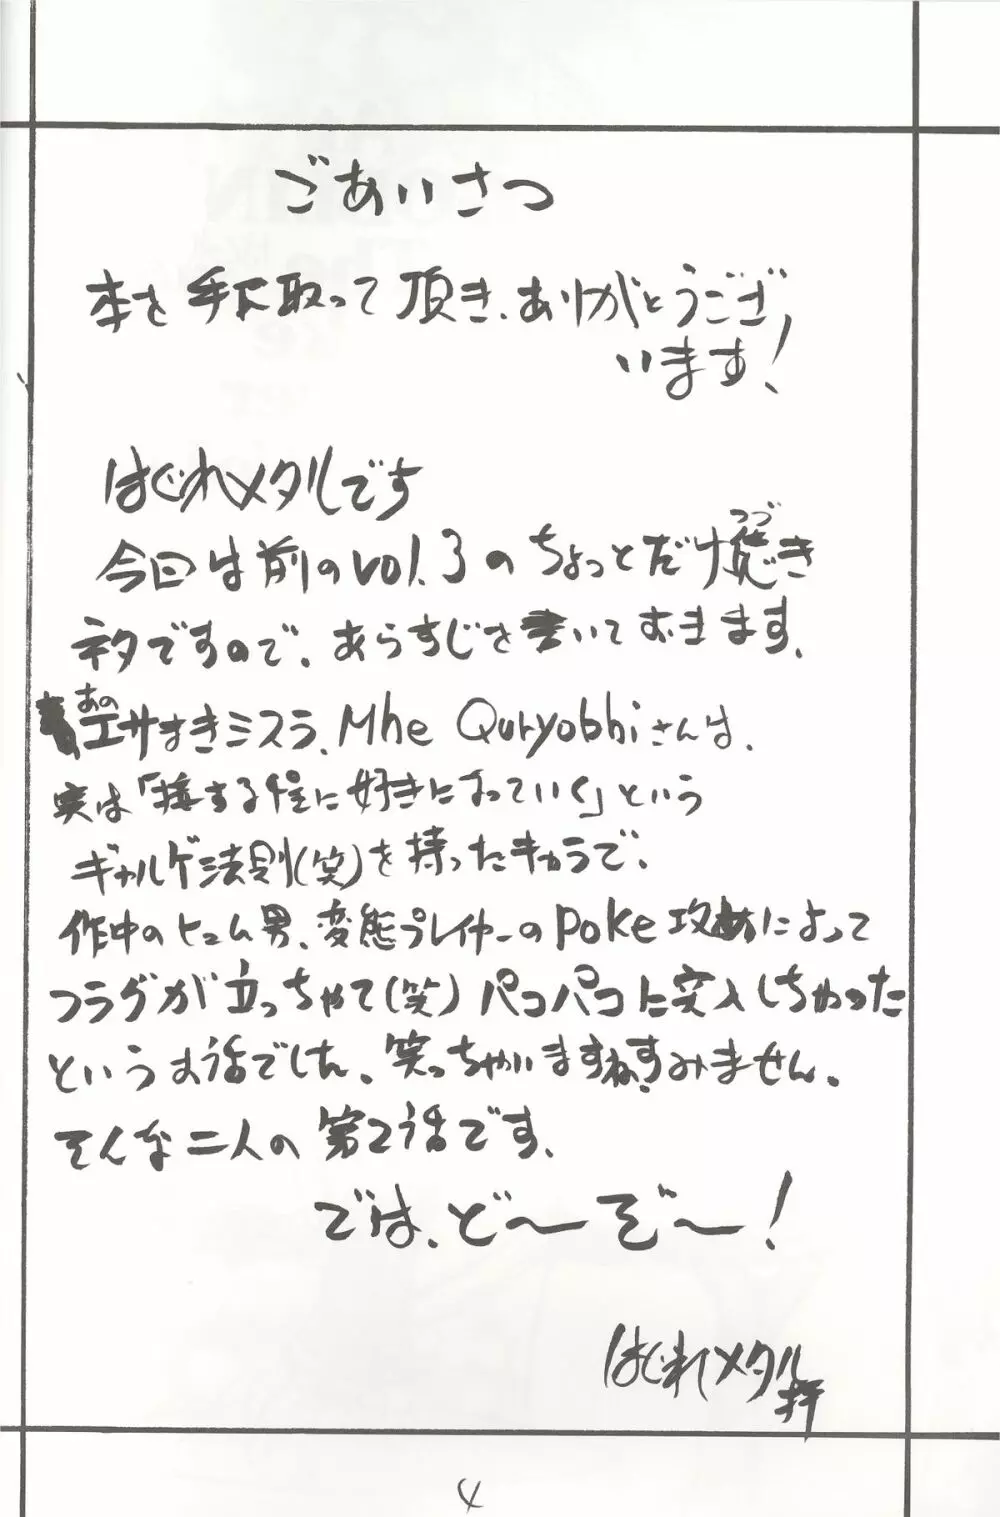 ごあいさつ
本を手に取って頂き、ありがとうござ
います!
はぐれメタルです
今回は前のvol.3のちょっとだけ続き
つづ
ネタですので、あらすじを書いておきます。
あの
エサまきミスラ、Mhe Quryobhiさんは、
実は「接する程に好きになっていく」という
ギャルゲ法則(笑)を持ったキャラで、
作中のヒュム男、変態プレイヤーのpoke攻めによって
フラグが立っちゃて(笑)パコパコに突入しちゃった
というお話でした。笑っちゃいますね。すみません。
そんな二人の第2話です。
では、ど〜ぞ〜!
はぐれメタル
拝
4